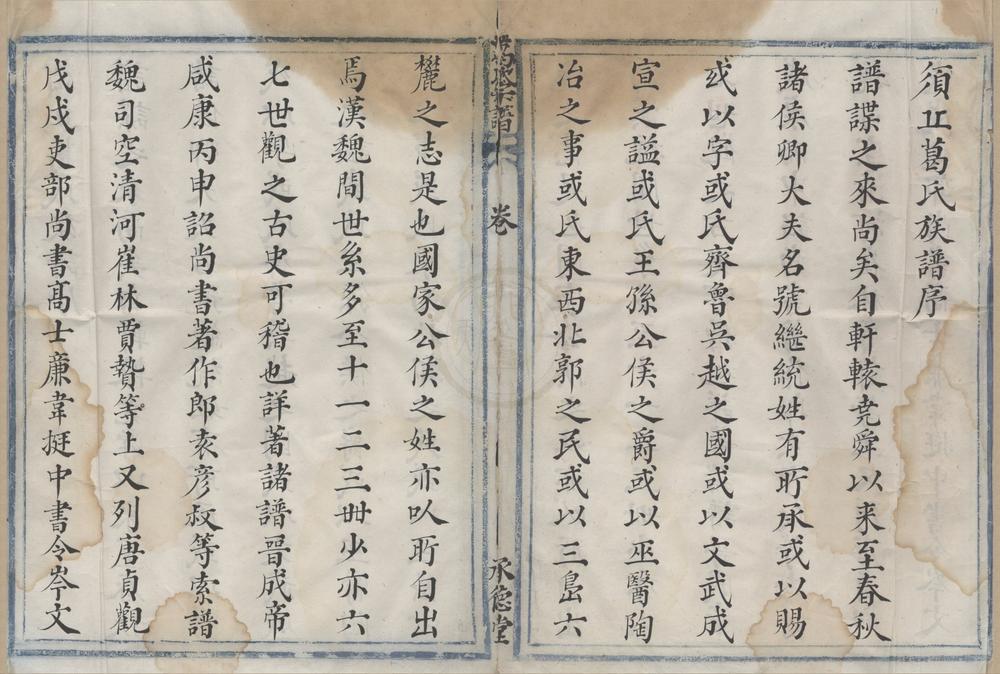 須㐀葛氏族譜序
譜諜之來尚矣自軒轅尭舜以来至春秋
諸侯卿大夫名號繼統姓有所承或以賜
或以字或氏齊魯吳越之國或以文武成
宣之謚或氏王孫公侯之爵或以巫醫陶
冶之事或氏東西北郭之民或以三島六
葛氏宗譜
卷
承德堂
蘽之志是也國家公侯之姓亦以所自出
焉漢魏間世系多至十一二三世少亦六
七世觀之古史可稽也詳著諸譜晉成帝
咸康丙申詔尚書著作郎袁彦叔等索譜
魏司空清河崔林賈贄等上又列唐貞觀
戊戌吏部尚書髙士亷韋挺中書令岑文